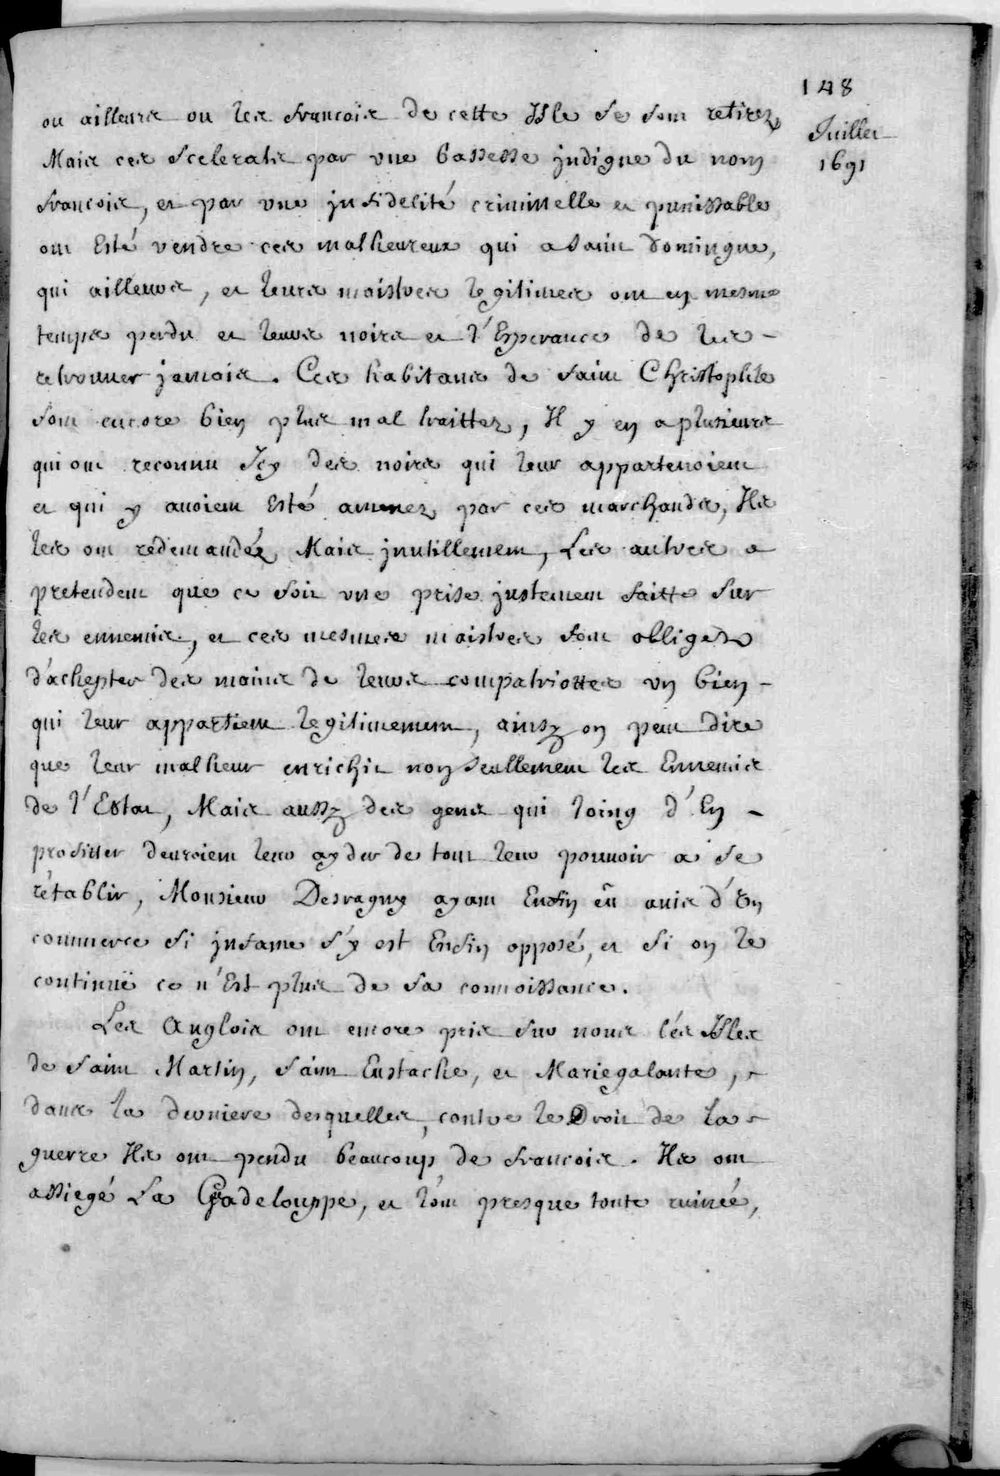 148
Juillet
1691
ou ailleurs ou les francois de cette Isle se sont retirez
Mais ces scelerats par une bassesse jndigne du nom
francois, et par une jnfidelité criminelle et punissable
ont Esté vendre ces malheureux qui a saint Domingue,
qui ailleurs, et leurs maistres legitimes ont en mesme
temps perdu et leurs noirs et l'Esperance de les -
retrouver jamais. Ces habitans de saint Christophle
sont encore bien plus mal traittez, Il y en a plusieurs
qui ont reconnu Jcy des noirs qui leur appartenoient
et qui y avoient Esté amenez par ces marchands, Ils
les ont redemandéz Mais jnutillement, Les autres
pretendent que ce soit une prise justement faitte sur
les ennemis, et ces mesmes maistres sont obligez
d'achepter des mains de leurs compatriottes un bien -
qui leur appartient legitimement, ainsy on peut dire
que leur malheur enrichit non seullement les Ennemis
de l'Estat, Mais aussy des gens qui loing d'En -
profitter devroient leur ayder de tout leur pouvoir a se
rétablir, Monsieur Desragny ayant Enfin eû avis d'Un
commerce si jnfame s'y est Enfin opposé, et si on le
continuë ce n'Est plus de sa connoissance.
Les Anglois ont encore pris sur nous lés Isles
de saint Martin, saint Eustache, et Mariegalante,
dans la derniere desquelles, contre le Droit de la
guerre Ils ont pendu beaucoup de francois. Ils ont
assiegé La Gadelouppe, et l'ont presque toute ruinée,